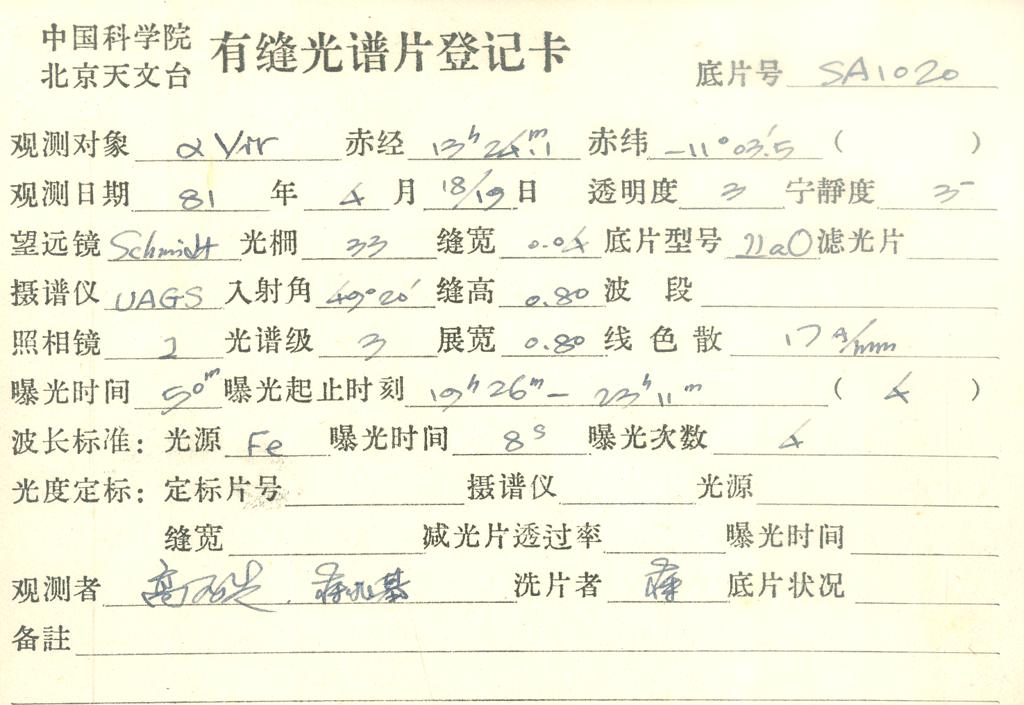 中国科学院
北京天文台 有缝光谱片登记卡 底片号 SA1020
观测对象 α Vir 赤经 13ʰ 24ᵐ.1 赤纬 -11° 03'.5 ( )
观测日期 81 年 4 月 18/19 日 透明度 3 宁静度 3-
望远镜 Schmidt 光栅 33 缝宽 0.04 底片型号 IIaO 滤光片
摄谱仪 UAGS 入射角 49°20' 缝高 0.80 波段
照相镜 2 光谱级 3 展宽 0.80 线色散 17 Å/mm
曝光时间 50ᵐ 曝光起止时刻 19ʰ 26ᵐ - 23ʰ 11ᵐ ( 4 )
波长标准: 光源 Fe 曝光时间 8ˢ 曝光次数 4
光度定标: 定标片号 摄谱仪 光源
缝宽 减光片透过率 曝光时间
观测者 洗片者 蒋 底片状况
备註